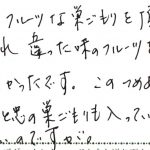 フルーツな巣ごもりを頂
れ 違った味のフルーツを
かったです。このつめ
と思の巣ごもりも入ってい
のですが。